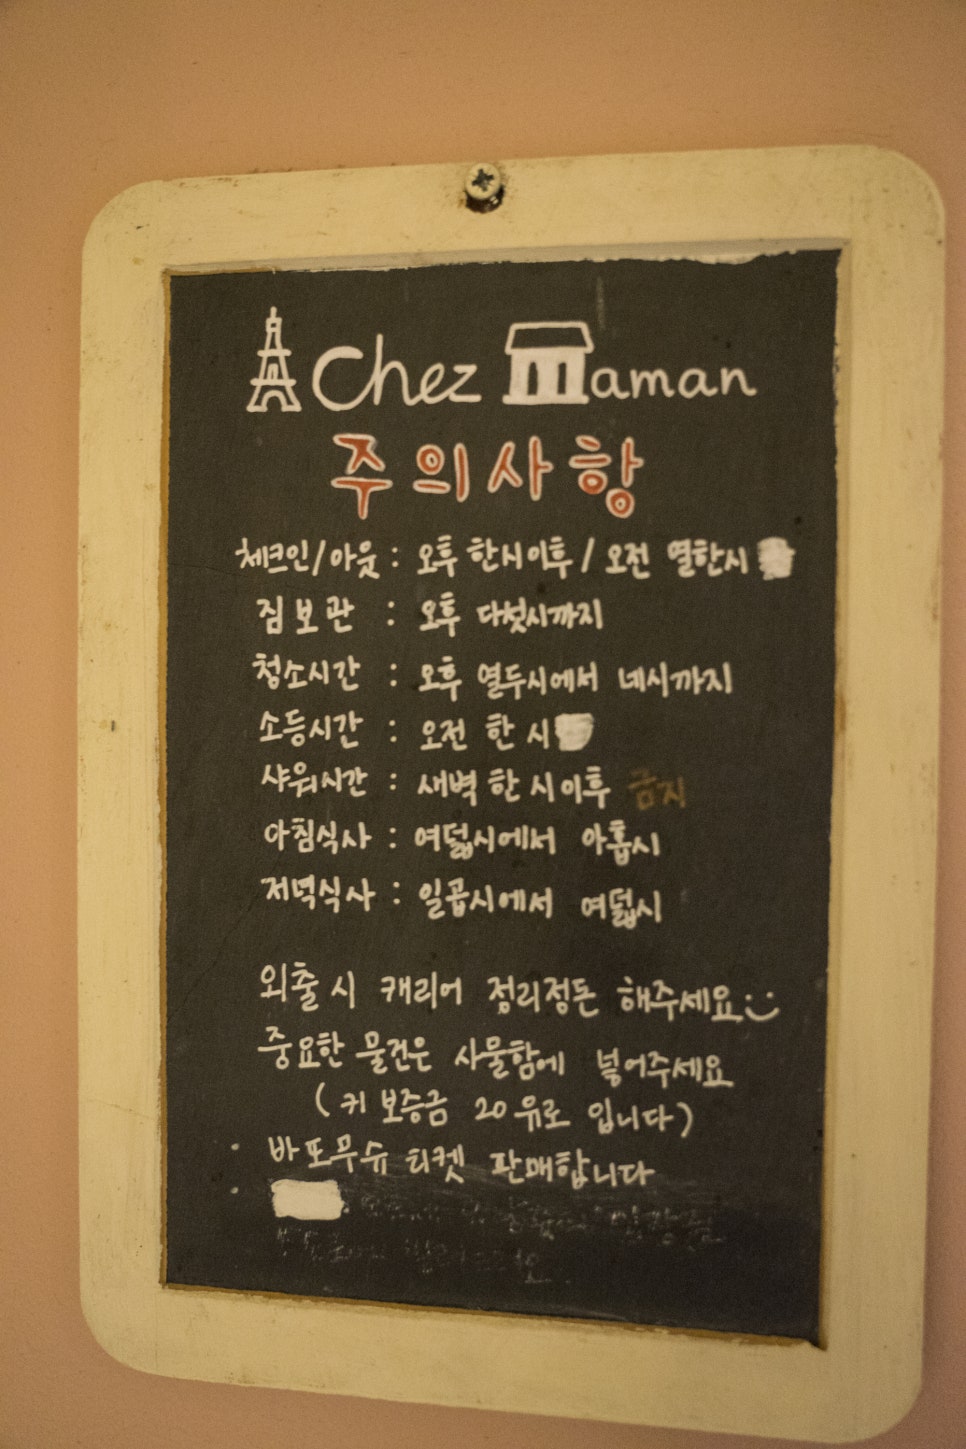 Chez Maman
주의사항
체크인/아웃 : 오후 한시이후 / 오전 열한시
짐보관 : 오후 다섯시까지
청소시간 : 오후 열두시에서 네시까지
소등시간 : 오전 한 시
샤워시간 : 새벽 한 시 이후 금지
아침식사 : 여덟시에서 아홉시
저녁식사 : 일곱시에서 여덟시
외출 시 캐리어 정리정돈 해주세요
중요한 물건은 사물함에 넣어주세요
( 키 보증금 20유로 입니다 )
바또무슈 티켓 판매합니다